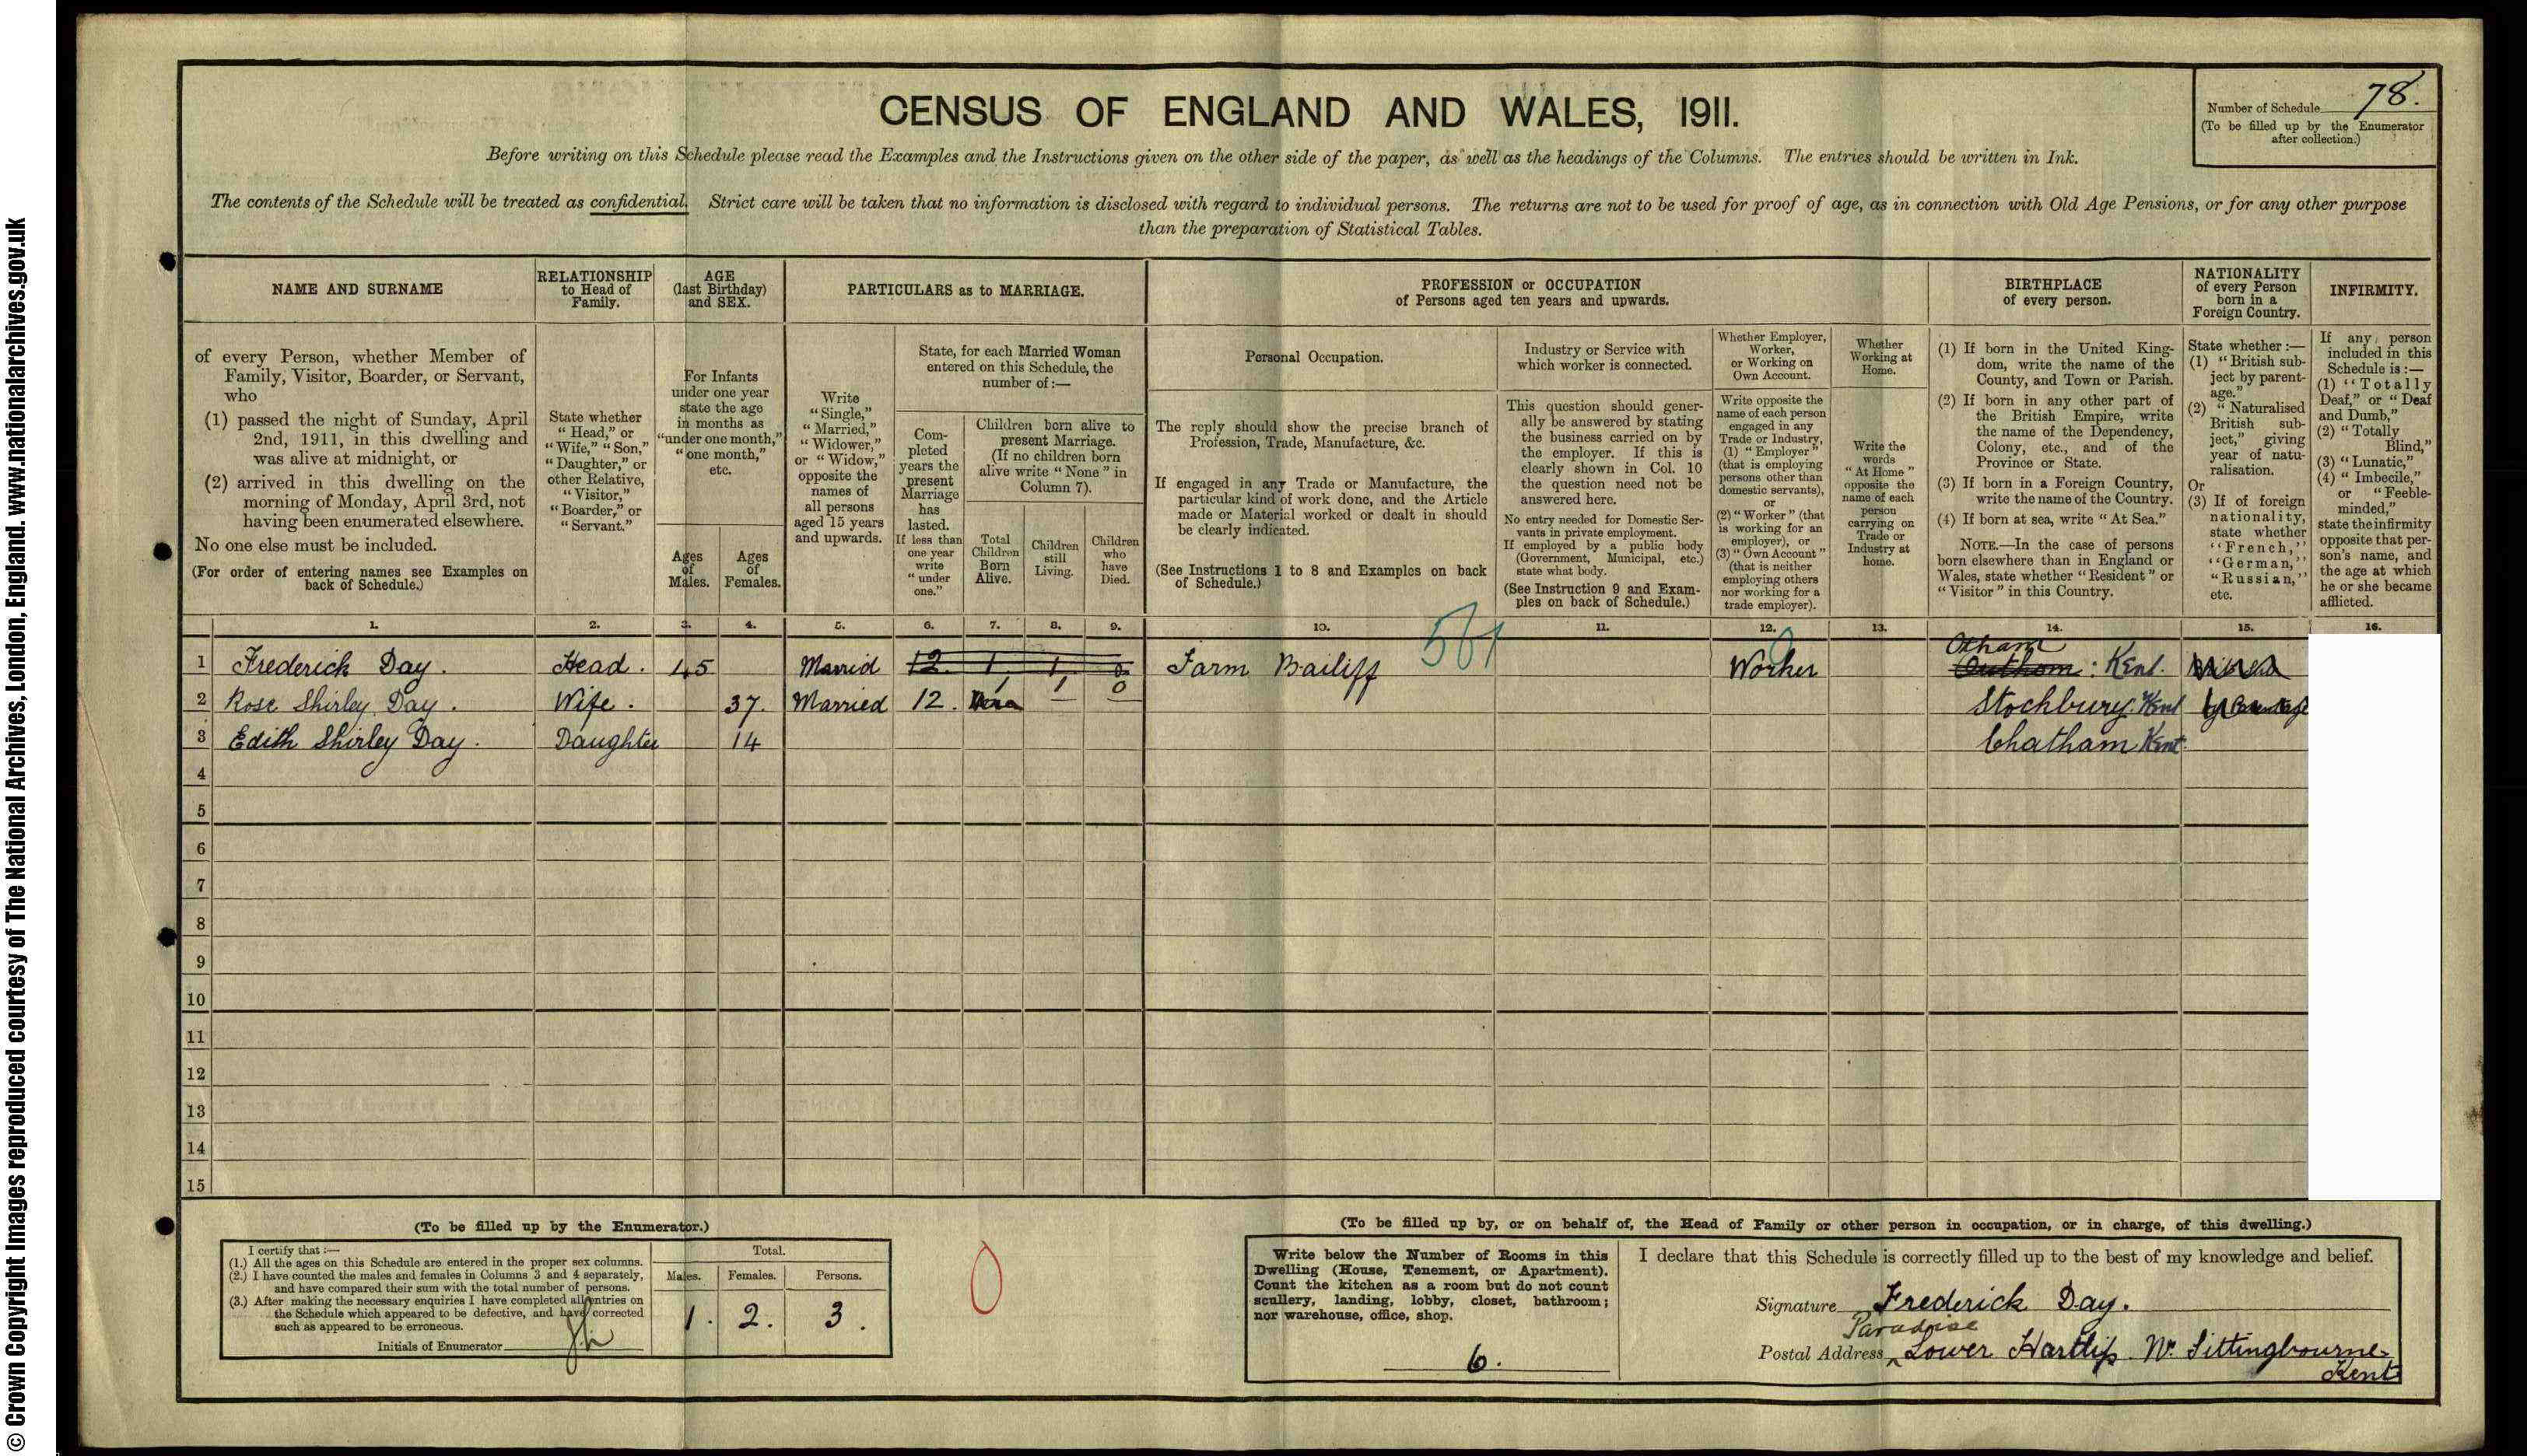 CENSUS OF ENGLAND AND WALES, 1911.
Number of Schedule 78.
(To be filled up by the Enumerator
after collection.)
Before writing on this Schedule please read the Examples and the Instructions given on the other side of the paper, as well as the headings of the Columns. The entries should be written in Ink.
The contents of the Schedule will be treated as confidential. Strict care will be taken that no information is disclosed with regard to individual persons. The returns are not to be used for proof of age, as in connection with Old Age Pensions, or for any other purpose
than the preparation of Statistical Tables.
NAME AND SURNAME
of every Person, whether Member of
Family, Visitor, Boarder, or Servant,
who
(1) passed the night of Sunday, April
2nd, 1911, in this dwelling and
was alive at midnight, or
(2) arrived in this dwelling on the
morning of Monday, April 3rd, not
having been enumerated elsewhere.
No one else must be included.
(For order of entering names see Examples on
back of Schedule.)
RELATIONSHIP
to Head of
Family.
State whether
"Head," or
"Wife," "Son,"
"Daughter," or
other Relative,
"Visitor,"
"Boarder," or
"Servant."
AGE
(last Birthday)
and SEX.
For Infants
under one year
state the age
in months as
"under one month,"
"one month,"
etc.
Ages
of
Males.
Ages
of
Females.
PARTICULARS as to MARRIAGE.
Write
"Single,"
"Married,"
"Widower,"
or "Widow,"
opposite the
names of
all persons
aged 15 years
and upwards.
State, for each Married Woman
entered on this Schedule, the
number of :—
Com-
pleted
years the
present
Marriage
has
lasted.
If less than
one year
write
"under
one."
Children born alive to
present Marriage.
(If no children born
alive write "None" in
Column 7).
Total
Children
Born
Alive.
Children
still
Living.
Children
who
have
Died.
PROFESSION or OCCUPATION
of Persons aged ten years and upwards.
Personal Occupation.
The reply should show the precise branch of
Profession, Trade, Manufacture, &c.
If engaged in any Trade or Manufacture, the
particular kind of work done, and the Article
made or Material worked or dealt in should
be clearly indicated.
(See Instructions 1 to 8 and Examples on back
of Schedule.)
Industry or Service with
which worker is connected.
This question should gener-
ally be answered by stating
the business carried on by
the employer. If this is
clearly shown in Col. 10
the question need not be
answered here.
No entry needed for Domestic Ser-
vants in private employment.
If employed by a public body
(Government, Municipal, etc.)
state what body.
(See Instruction 9 and Exam-
ples on back of Schedule.)
Whether Employer,
Worker,
or Working on
Own Account.
Write opposite the
name of each person
engaged in any
Trade or Industry,
(1) "Employer"
(that is employing
persons other than
domestic servants),
or
(2) "Worker" (that
is working for an
employer), or
(3) "Own Account"
(that is neither
employing others
nor working for a
trade employer).
Whether
Working at
Home.
Write the
words
"At Home"
opposite the
name of each
person
carrying on
Trade or
Industry at
home.
BIRTHPLACE
of every person.
(1) If born in the United King-
dom, write the name of the
County, and Town or Parish.
(2) If born in any other part of
the British Empire, write
the name of the Dependency,
Colony, etc., and of the
Province or State.
(3) If born in a Foreign Country,
write the name of the Country.
(4) If born at sea, write "At Sea."
NOTE.—In the case of persons
born elsewhere than in England or
Wales, state whether "Resident" or
"Visitor" in this Country.
NATIONALITY
of every Person
born in a
Foreign Country.
State whether :—
(1) "British sub-
ject by parent-
age."
(2) "Naturalised
British sub-
ject," giving
year of natu-
ralisation.
Or
(3) If of foreign
nationality,
state whether
"French,"
"German,"
"Russian,"
etc.
INFIRMITY.
If any person
included in this
Schedule is :—
(1) "Totally
Deaf," or "Deaf
and Dumb,"
(2) "Totally
Blind,"
(3) "Lunatic,"
(4) "Imbecile,"
or "Feeble-
minded,"
state the infirmity
opposite that per-
son's name, and
the age at which
he or she became
afflicted.
1. 2. 3. 4. 5. 6. 7. 8. 9. 10. 11. 12. 13. 14. 15. 16.
Otham
1 Frederick Day. Head. 45 Married 12 1 1 0 Farm Bailiff Worker : Kent.
2 Rose Shirley Day. Wife. 37. Married 12. 1 1 0 Stockbury. Kent
3 Edith Shirley Day. Daughter 14 Chatham Kent.
4
5
6
7
8
9
10
11
12
13
14
15
(To be filled up by the Enumerator.)
I certify that :—
(1.) All the ages on this Schedule are entered in the proper sex columns.
(2.) I have counted the males and females in Columns 3 and 4 separately,
and have compared their sum with the total number of persons.
(3.) After making the necessary enquiries I have completed all entries on
the Schedule which appeared to be defective, and have corrected
such as appeared to be erroneous.
Initials of Enumerator
Total.
Males. Females. Persons.
1. 2. 3.
0
(To be filled up by, or on behalf of, the Head of Family or other person in occupation, or in charge, of this dwelling.)
Write below the Number of Rooms in this
Dwelling (House, Tenement, or Apartment).
Count the kitchen as a room but do not count
scullery, landing, lobby, closet, bathroom;
nor warehouse, office, shop.
6.
I declare that this Schedule is correctly filled up to the best of my knowledge and belief.
Signature Frederick Day.
Paradise
Postal Address Lower Hartlip Nr. Sittingbourne
Kent
© Crown Copyright Images reproduced courtesy of The National Archives, London, England. www.nationalarchives.gov.uk